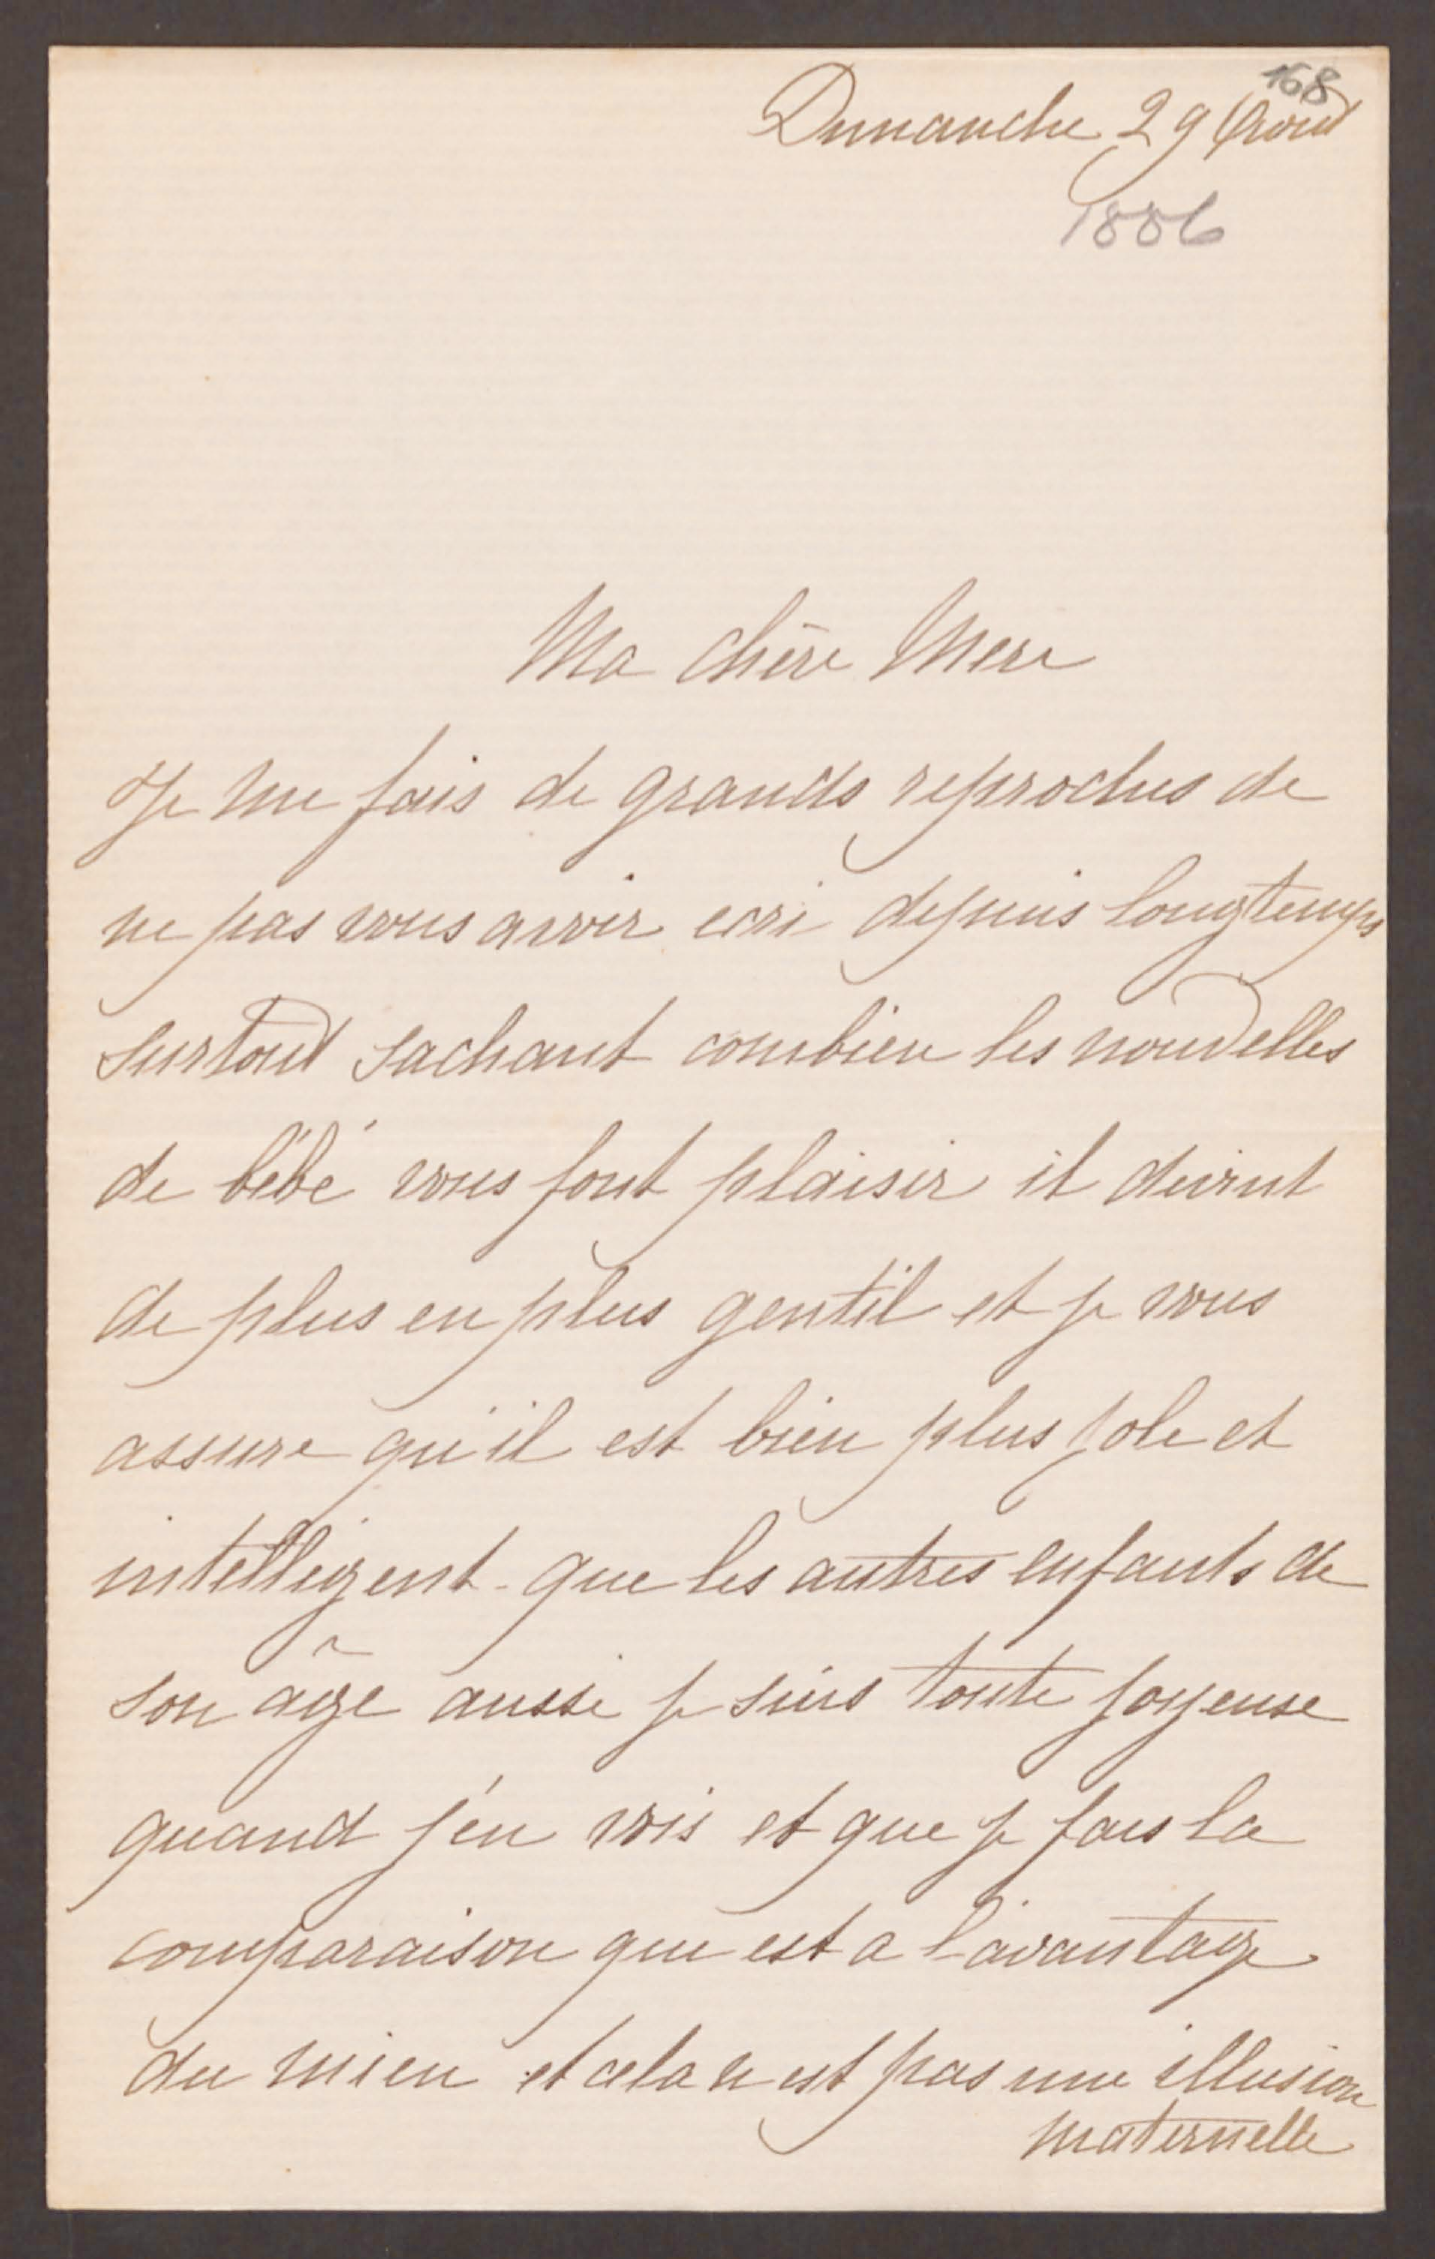 168
Dimanche 29 Aout
1886
Ma chère Mere
Je me fais de grands reproches de
ne pas vous avoir ecri depuis longtemps
surtout sachant combien les nouvelles
de bébé vous font plaisir il devient
de plus en plus gentil et je vous
assure qu'il est bien plus joli et
intelligent que les autres enfants de
son âge aussi je suis toute joyeuse
quand j'en vois et que je fais la
comparaison qui est a l'avantage
du mien et cela n est pas une illusion
maternelle